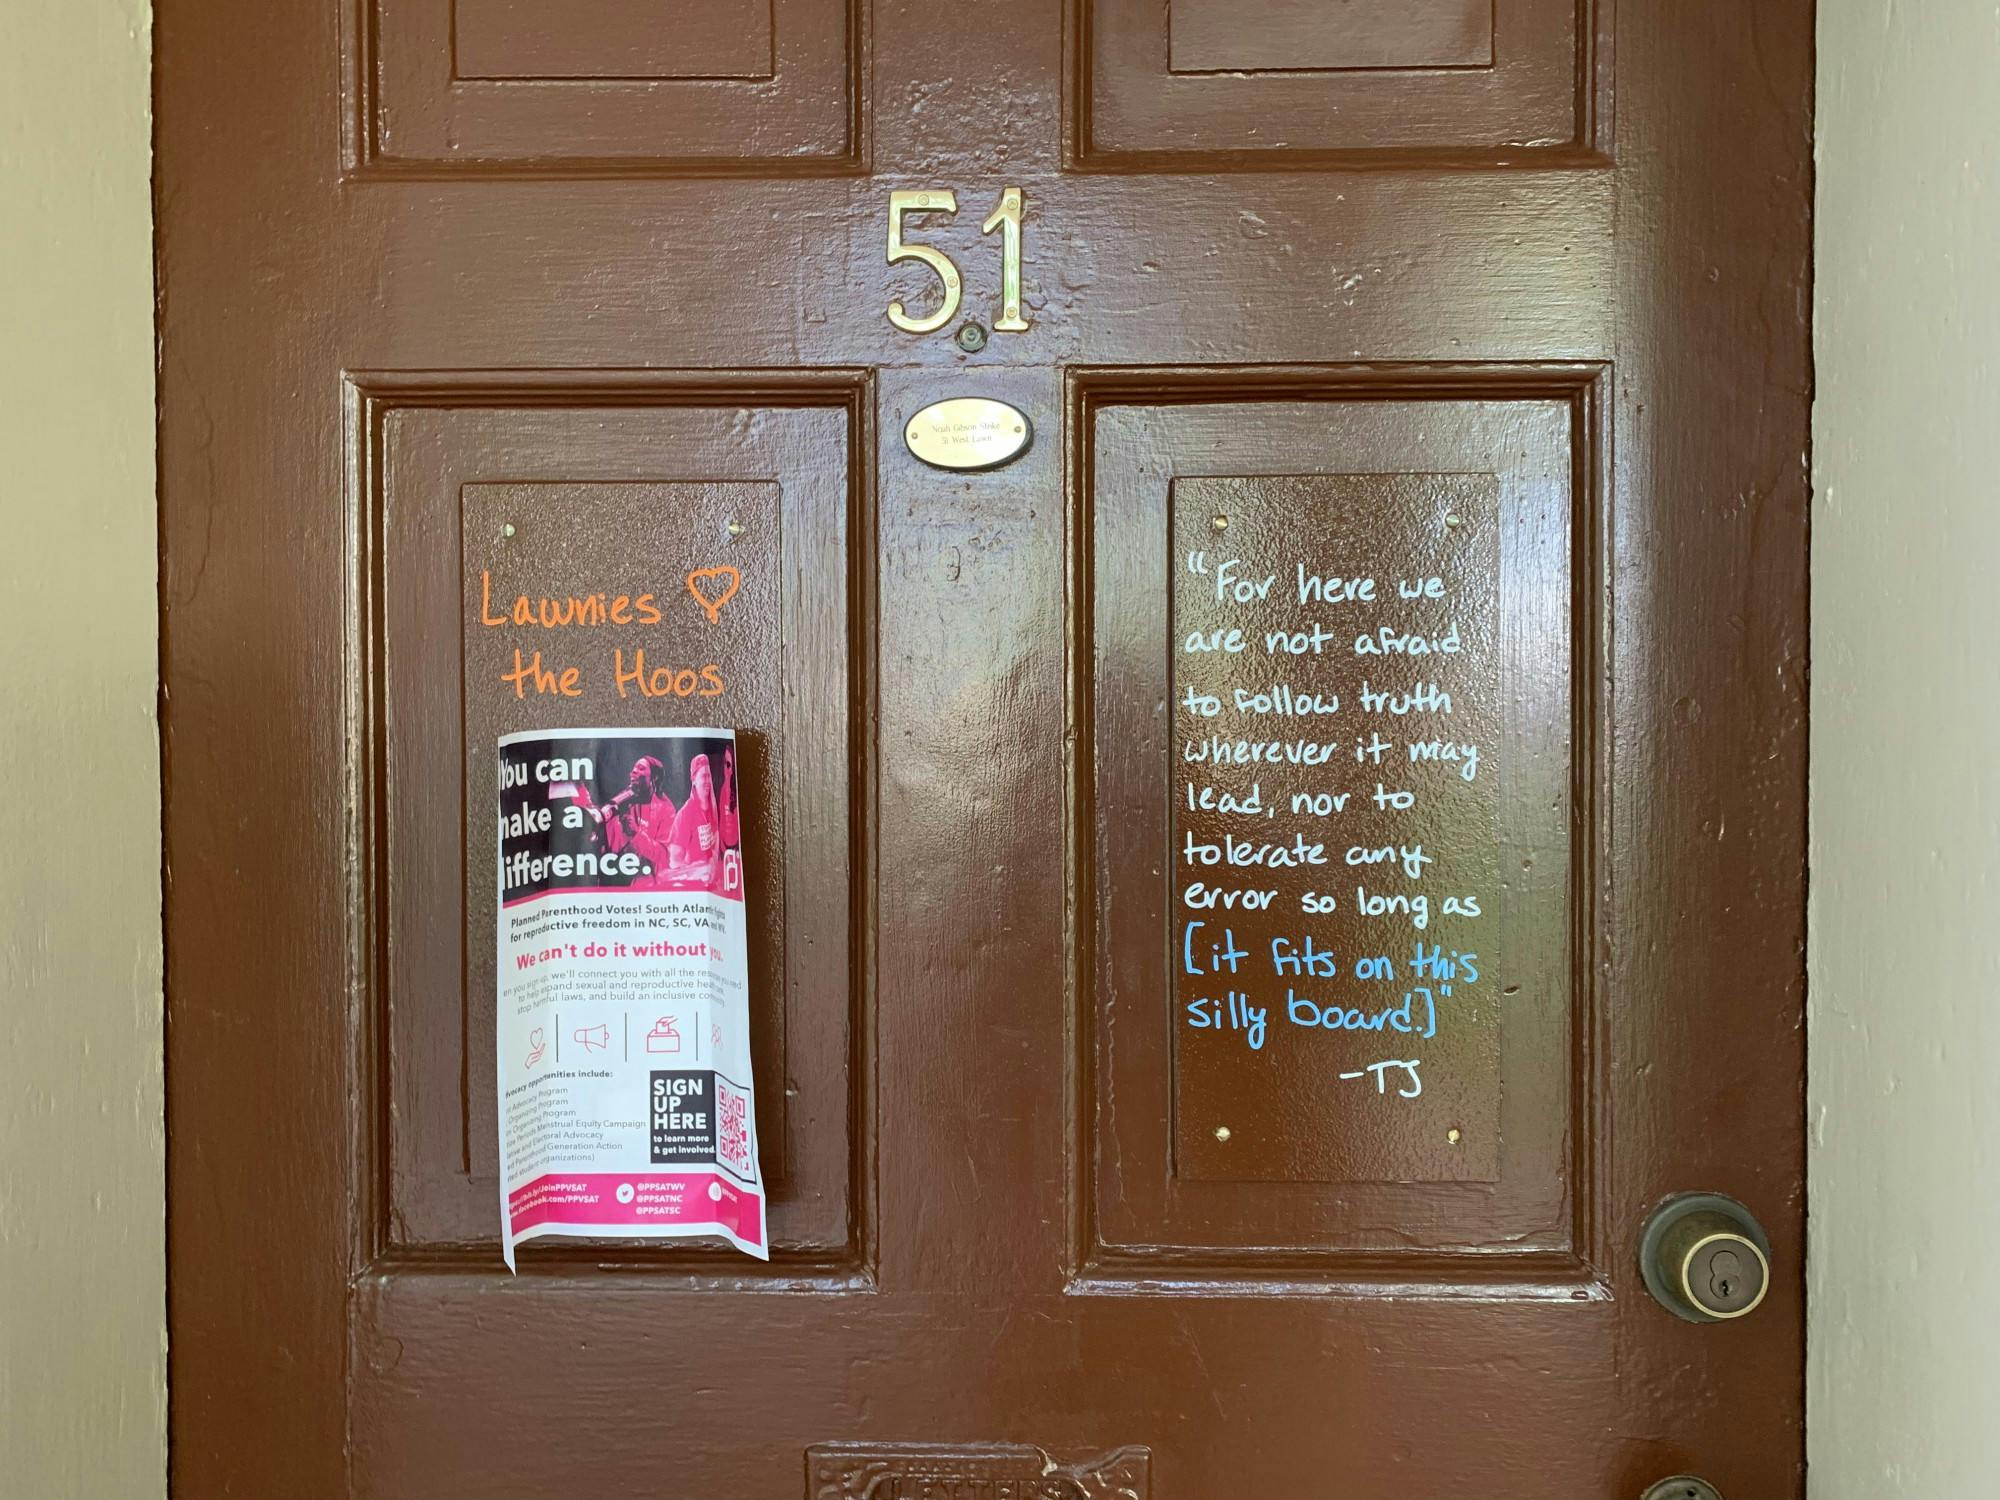 51
Noah Gibson Strike
51 West Lawn
Lawnies ♡
the Hoos
You can
make a
difference.
Planned Parenthood Votes! South Atlantic fights
for reproductive freedom in NC, SC, VA and WV.
We can't do it without you.
en you sign up, we'll connect you with all the resources you need
to help expand sexual and reproductive health care,
stop harmful laws, and build an inclusive community.
vocacy opportunities include:
nt Advocacy Program
Organizing Program
on Organizing Program
Periods Menstrual Equity Campaign
lative and Electoral Advocacy
ed Parenthood Generation Action
student organizations)
SIGN
UP
HERE
to learn more
& get involved.
JoinPPVSAT
facebook.com/PPVSAT
@PPSATWV
@PPSATNC
@PPSATSC
@PPVSAT
"For here we
are not afraid
to follow truth
wherever it may
lead, nor to
tolerate any
error so long as
[it fits on this
silly board.]"
-TJ
LETTERS